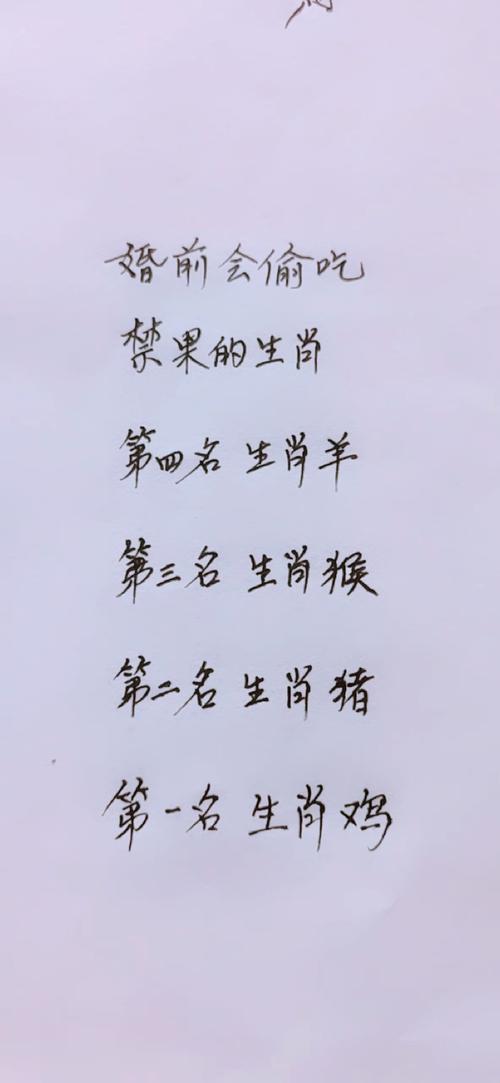 婚前会偷吃
禁果的生肖
第四名 生肖羊
第三名 生肖猴
第二名 生肖猪
第一名 生肖鸡